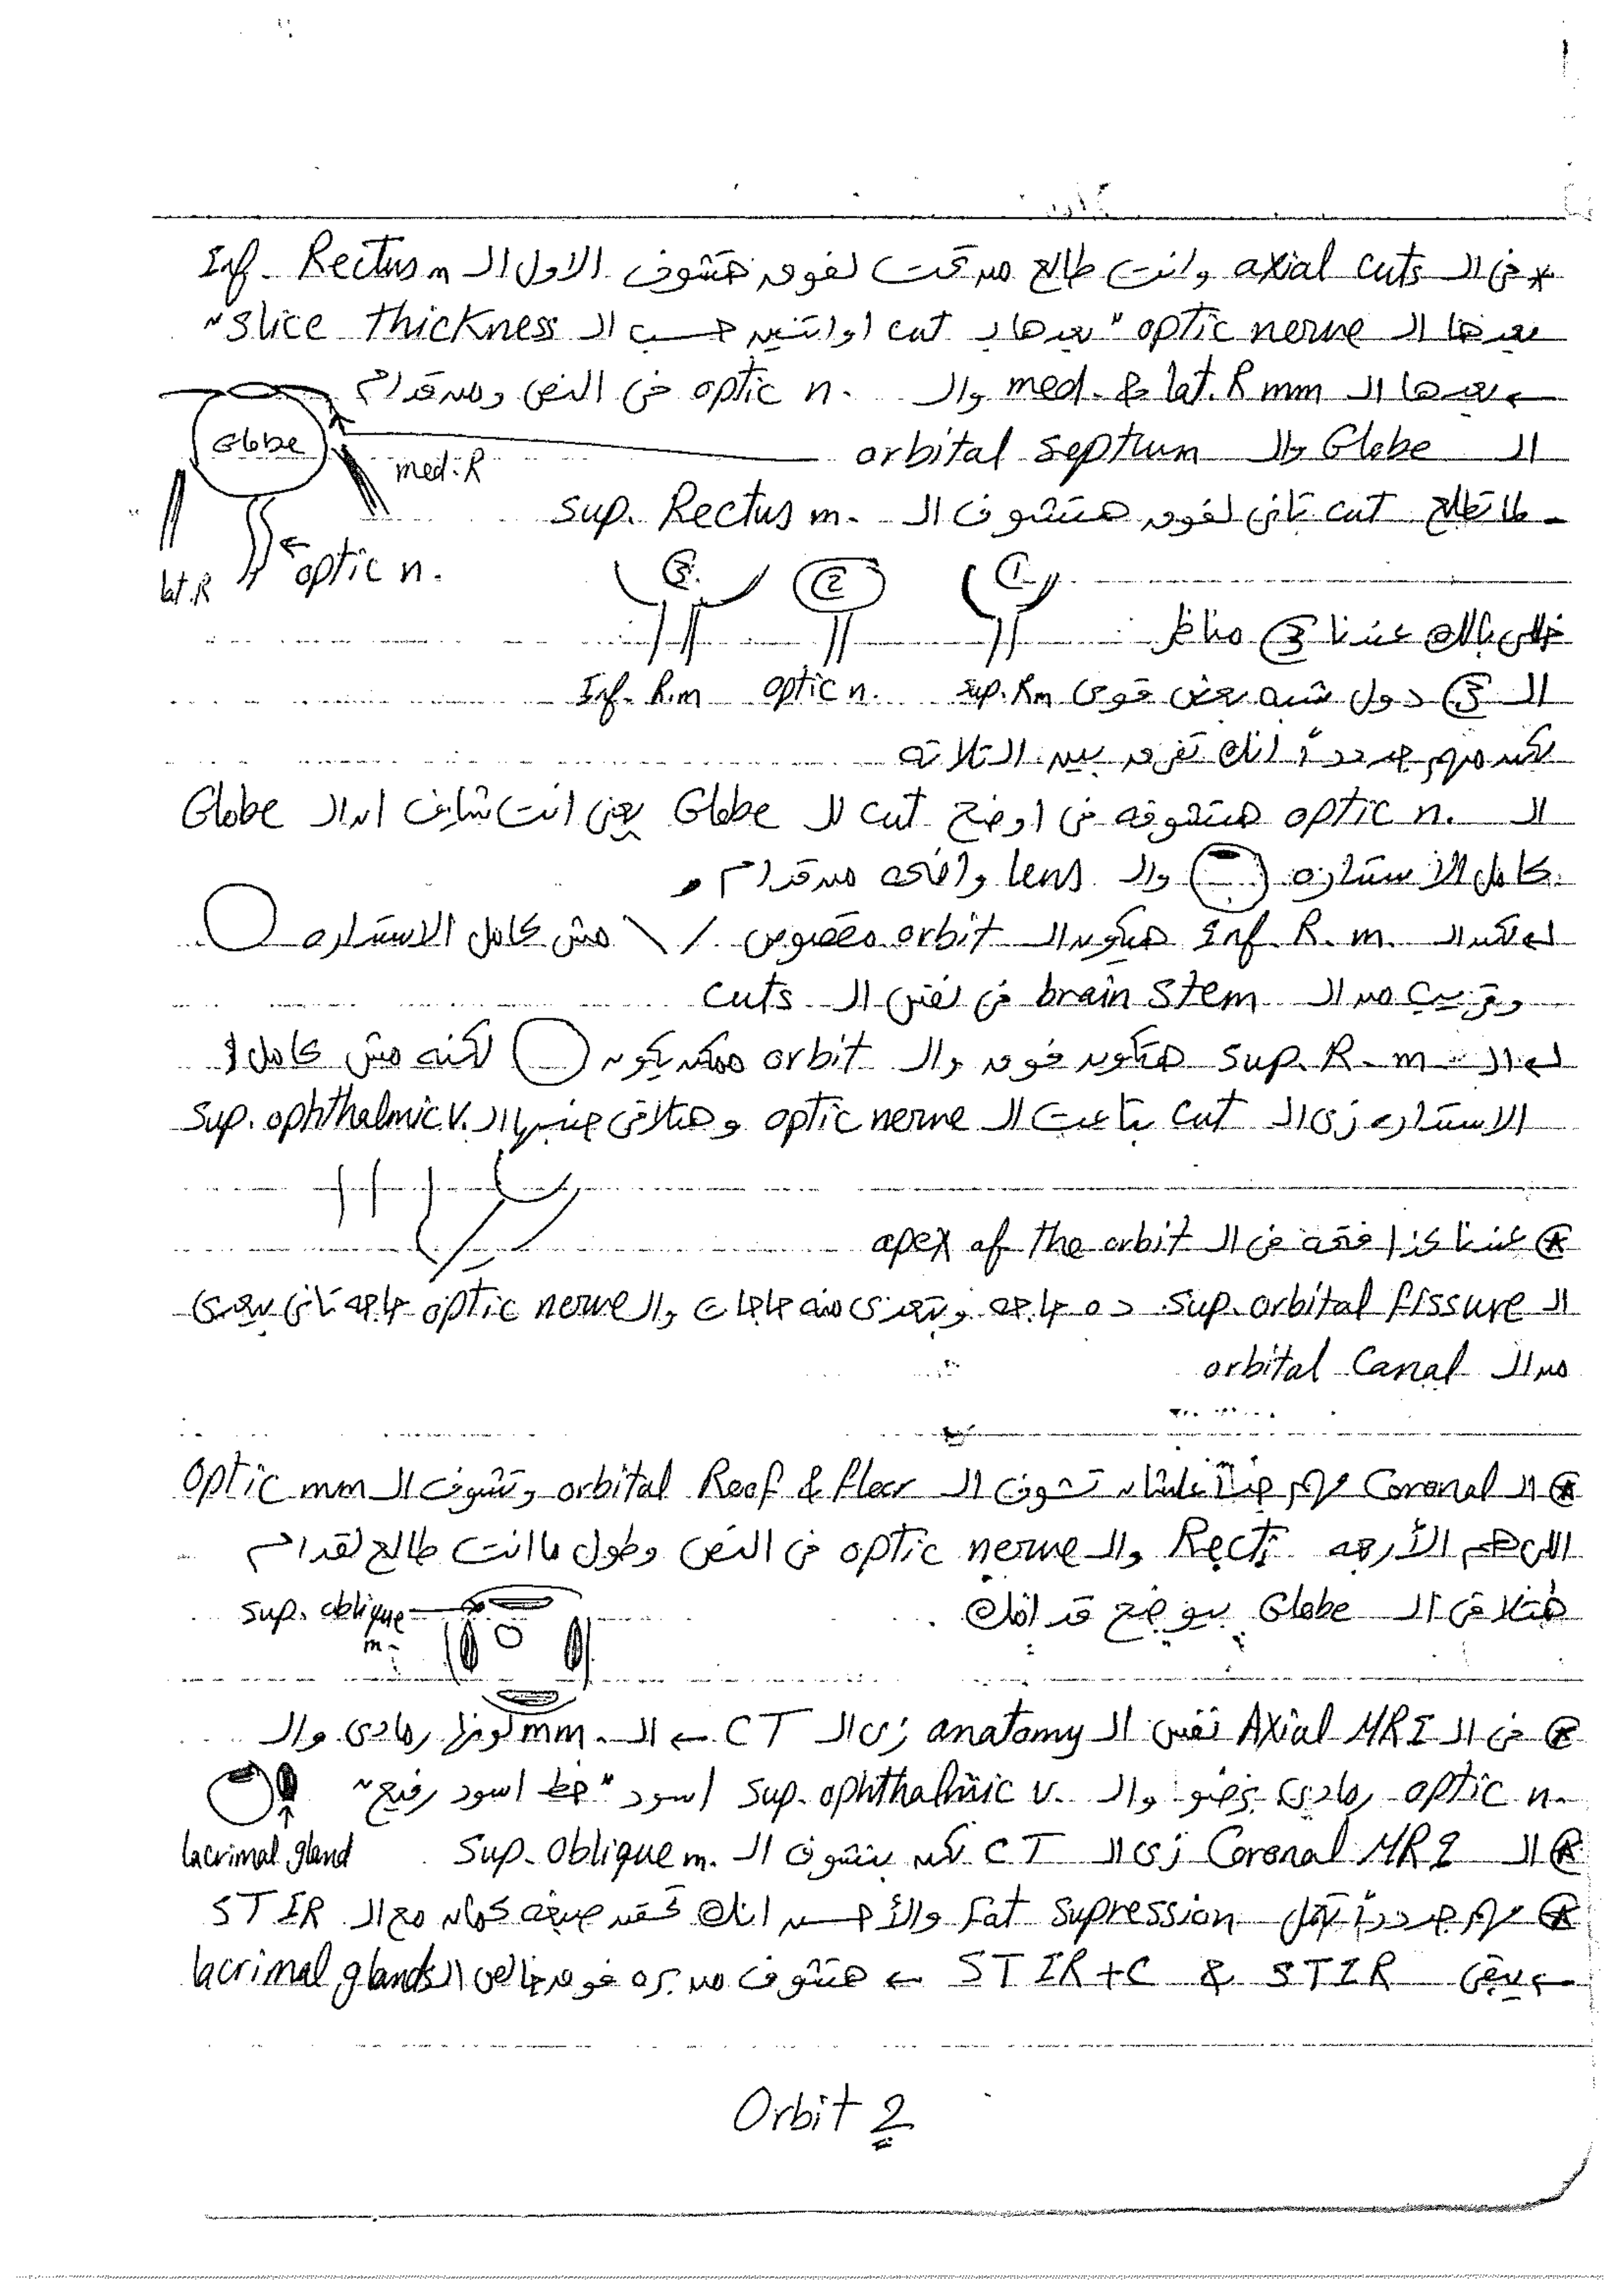 * فى الـ axial cuts وانت طالع من تحت لفوق هتشوف الاول الـ Inf. Rectus m
بعدها الـ optic nerve "بعدها بـ cut او اتنين حسب الـ slice thickness"
← بعدها الـ med. & lat. R mm والـ optic n. فى النص ومن قدام
الـ Globe والـ orbital septum
Globe
med. R
- لما تطلع cut تانى لفوق هتشوف الـ sup. Rectus m.
optic n.
lat. R
③ ② ①
خلى بالك عندنا ③ مناظر
الـ ③ دول شبه بعض قوى sup. Rm optic n. Inf. R.m
لكن مهم جدداً انك تفرق بين التلاته
الـ optic n. هتشوفه فى اوضح cut للـ Globe يعنى انت شايف ان الـ Globe
كامل الاستداره والـ lens واضحه من قدام و
لكن الـ Inf. R. m. هيكون الـ orbit مقصوص / \ مش كامل الاستداره
وقريب من الـ brain stem فى نفس الـ cuts
الـ sup. R. m هتكون فوق والـ orbit ممكن يكون لكنه مش كامل
الاستداره زى الـ cut بتاعت الـ optic nerve وهتلاقى جنبها الـ sup. ophthalmic v.
* عندنا كذا فتحة فى الـ apex of the orbit
الـ sup. orbital fissure ده حاجه وبتعدى منه حاجات والـ optic nerve حاجه تانى بيعدى
من الـ orbital Canal
* الـ Coronal مهم جداً علشان تشوف الـ orbital Roof & floor وتشوف الـ optic mm
اللى هم الأربعه Recti والـ optic nerve فى النص وطول ما انت طالع لقدام
هتلاقى الـ Globe بيوضح قدامك .
sup. oblique m.
* فى الـ Axial MRI نفس الـ anatomy زى الـ CT ← الـ mm. لونها رمادى والـ
optic n. رمادى برضو والـ sup. ophthalmic v. اسود "خط اسود رفيع"
lacrimal gland
* الـ Coronal MRI زى الـ CT لكن بنشوف الـ Sup. Oblique m.
* مهم جدداً تعمل fat supression والأحسن انك تحقن صبغه كمان مع الـ STIR
← يبقى STIR & STIR+C ← هتشوف من بره فوق خالص الـ lacrimal glands
Orbit 2